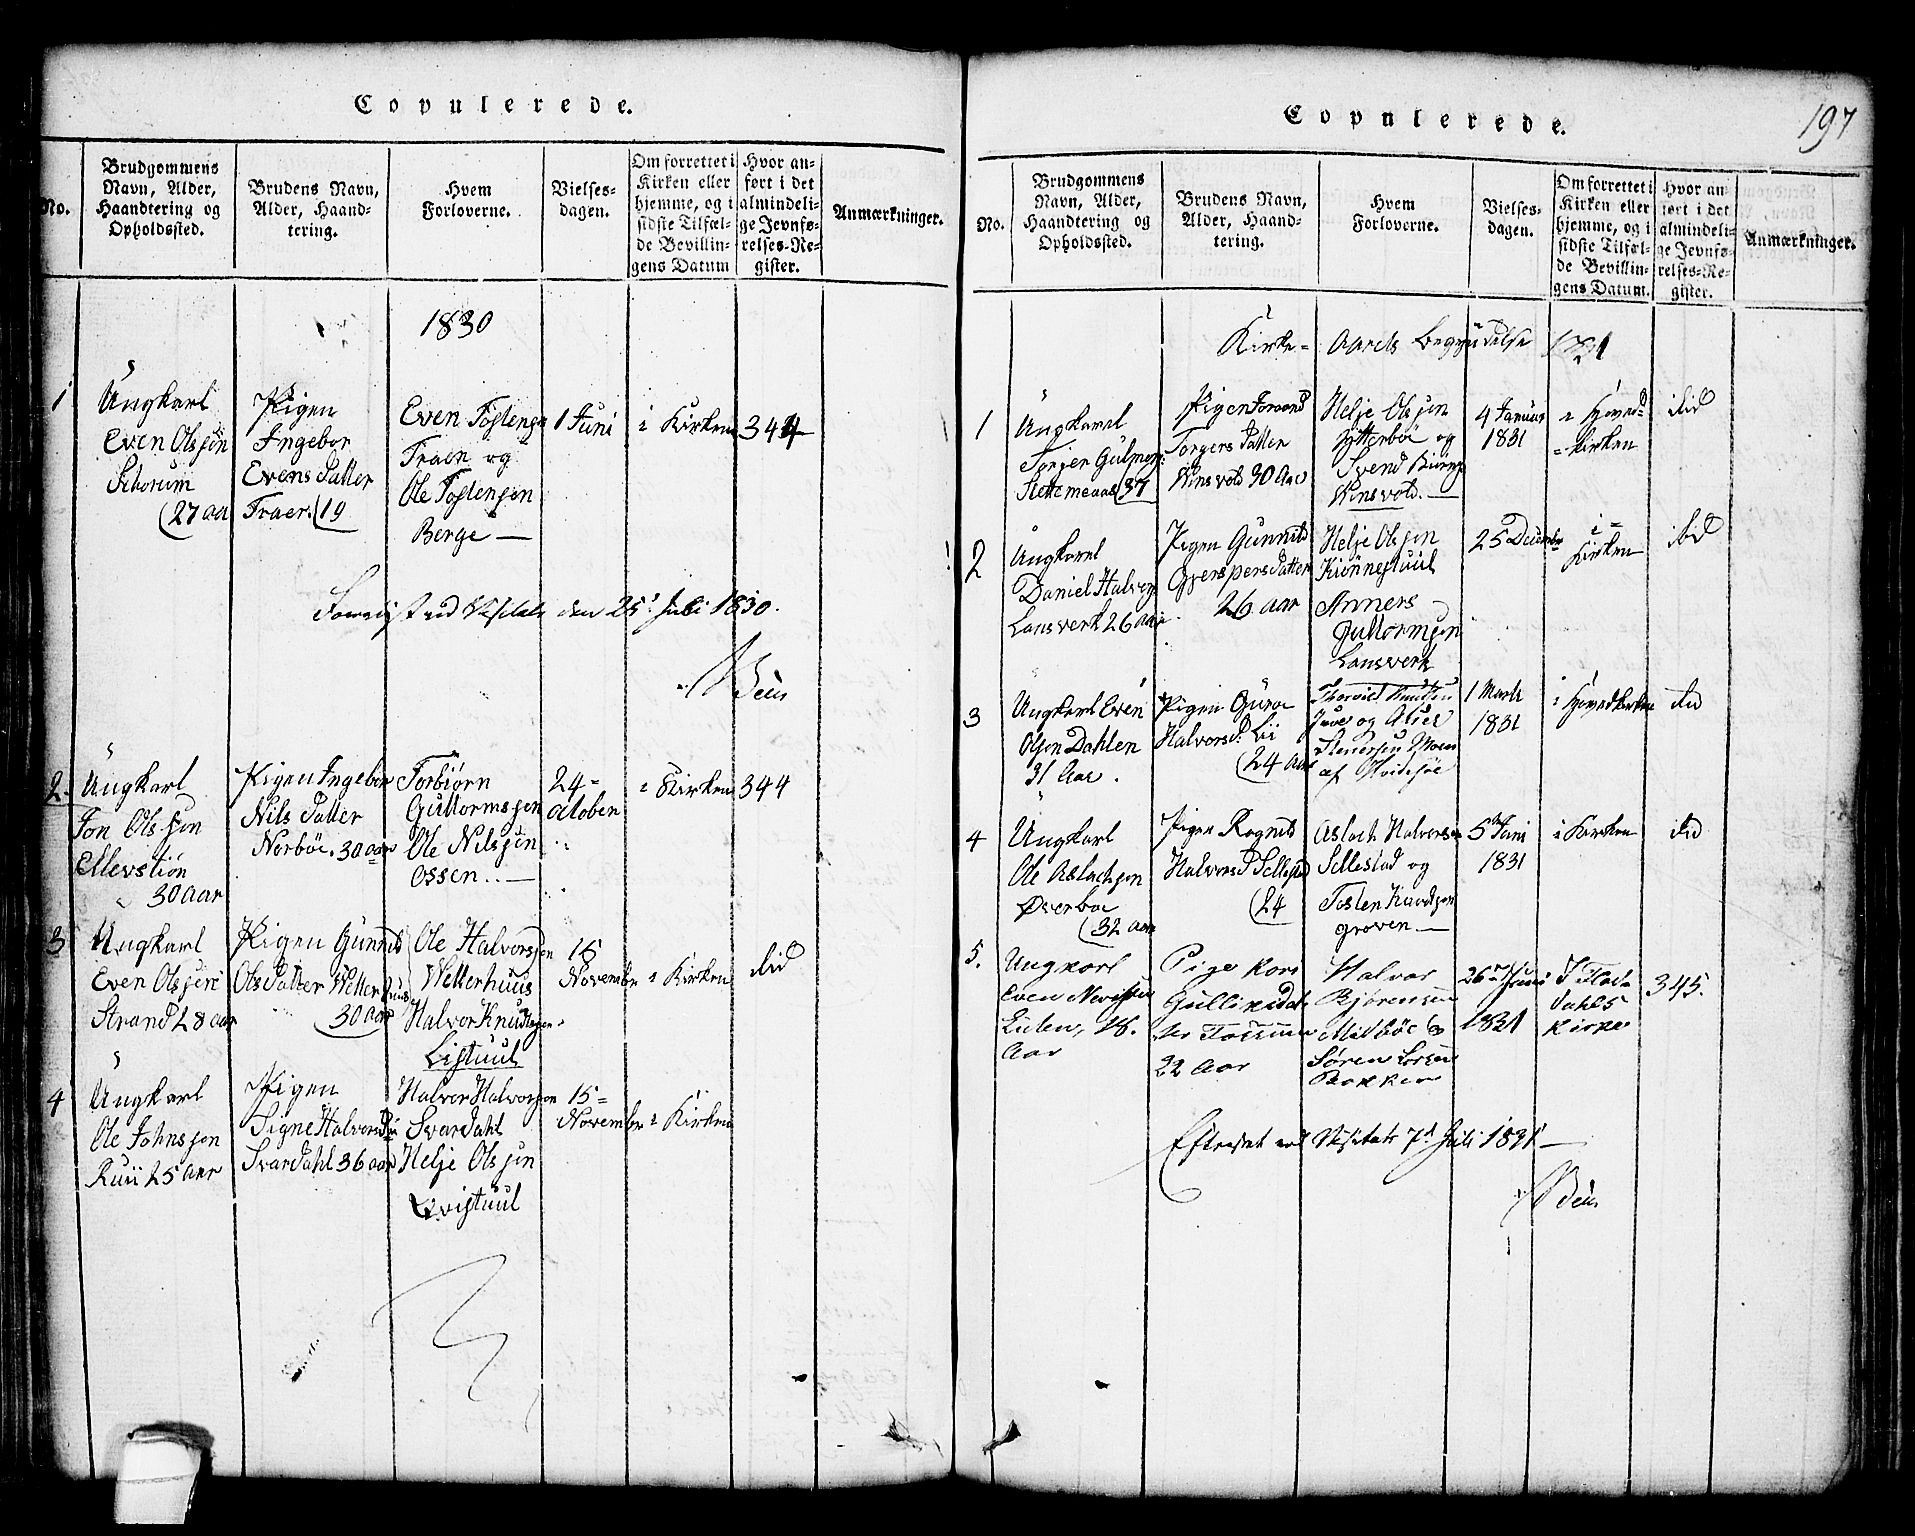 Copulerede.
No.
Brudgommens
Navn, Alder,
Haandtering og
Opholdssted.
Brudens Navn,
Alder, Haand-
tering.
Hvem
Forloverne.
Vielses-
dagen.
Om forrettet i
Kirken eller
hjemme, og i
sidste Tilfæl-
de Bevillin-
gens Datum
Hvor an-
ført i det
almindeli-
ge Jevnfø-
relses-Re-
gister.
Anmærkninger.
1830
1
Ungkarl
Even Olssøn
27 aar
Pigen
Ingebor
Evens Datter
Traen (19
Even Tostensen
Traen og
Ole Tostensen
Berge
1 Juni
i Kirken
344
ved Visitats den 25 Juli 1830.
2.
Ungkarl
Jon Olssøn
Ellevstiøn
30 aar
Pigen Ingebor
Nils Datter
Norbøe. 30 aar
Torbiørn
Guttormssøn
Ole Nilssøn
Ossen
24
Octoben
i Kirken
344
3
Ungkarl
Even Olssøn
Strand 28 aar
Pigen Gunnild
Ols Datter Wetterhuus
30 aar
Ole Halvorssøn
Wetterhuus
Halvor Knudssøn
Listuul
15
Novembr
i Kirken
ibid
4
Ungkarl
Ole Johnssøn
Ruii 25 aar
Pigen
Signe Halvorsd
Svardahl 36 aar
Halvor Halvorssøn
Svardahl
Helje Olssøn
Qvistuul
15
Novembr
i Kirken
Copulerede.
197
No.
Brudgommens
Navn, Alder,
Haandtering og
Opholdssted.
Brudens Navn,
Alder, Haand-
tering.
Hvem
Forloverne.
Vielses-
dagen.
Om forrettet i
Kirken eller
hjemme, og i
sidste Tilfæl-
de Bevillin-
gens Datum.
Hvor an-
ført i det
almindeli-
ge Jevnfø-
relses-Re-
gister.
Anmærkninger.
Kirke- Aarets Begyndelse 1831
1
Ungkarl
37
Pigen
Torgers Datter
Kinsvold 30 Aar
Helje Olssøn
Ytterbøe og
Svend
Kinsvold.
4 Januar
1831
i Hoved-
kirken
ibid
2
Ungkarl
Daniel Halvors
Lansverk 26 aar
Pigen Gunnild
Datter
26 aar
Helje Olssøn
Kiønnestuul
Anners
Guttormssøn
Lansverk
25 Decembr
i
Kirken
ibid
3
Ungkarl Even
Olsøn Dahlen
31 Aar.
Pigen Guroe
Halvorsd. Lii
(24 aar
Knudsen
Juve og
Moen
af Hvidesøe
1 Marts
1831
i Hovedkirken
ibid
4
Ungkarl
Ole Aslachsøn
Øverboe
(32 aar
Pigen Ragnild
Halvorsd Sellestad
(24
Aslach Halvorsen
Sellestad og
Tosten Knudssøn
Groven
5 Juni
1831
i Kirken
ibid
5.
Ungkarl
Even
Aar
Pige Kari
Gulliksdat-
ter
22 Aar
Halvor
Bjørensen
Midbøe og
Søren Larsen
Bakken
26 Juni
1831
I Flad-
dahls
Kirke
345.
Efterseet ved Visitats 7d Juli 1831